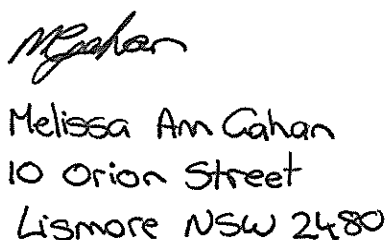 Melissa Ann Gahan
10 Orion Street
Lismore NSW 2480